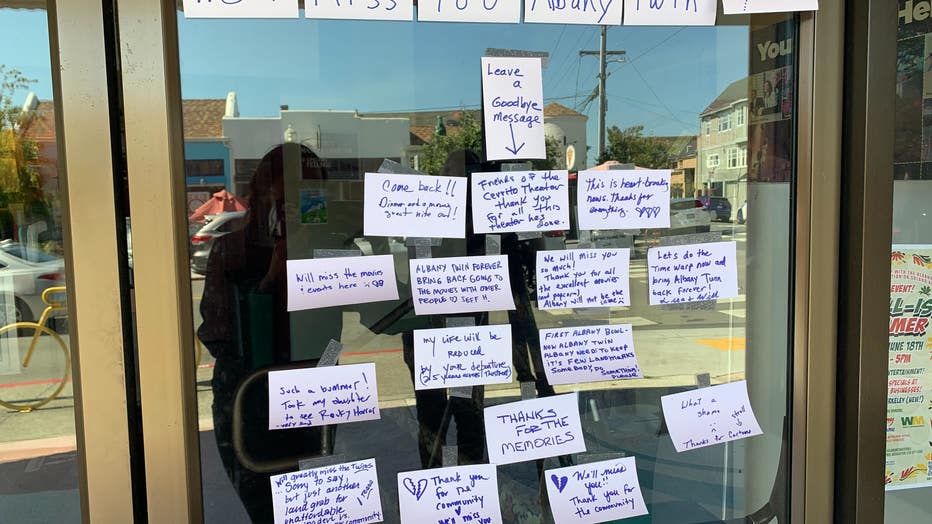 We'll Miss You Albany Twin
Leave
a
Goodbye
Message
Come back!!
Dinner and a movie,
great nite out!
Friends of the
Cerrito Theater
thank you
for all this
theater has
done.
This is heart-breaking
news. Thanks for
everything.
Will miss the movies
+ events here
ALBANY TWIN FOREVER
BRING BACK GOING TO
THE MOVIES WITH OTHER
PEOPLE
JEFF !!
We will miss you
so much!
Thank you for all
the excellent movies
(and popcorn)
Albany will not be the same
Let's do the
Time Warp now and
bring Albany Twin
back forever!
My life will be
reduced
by your departure
(25 years across the street)
FIRST ALBANY BOWL-
NOW ALBANY TWIN
ALBANY NEED TO KEEP
IT'S FEW LANDMARKS
SOMEBODY DO
SOMETHING!
PLEASE
Such a bummer!
Took my daughter
to see Rocky Horror
- very sad
THANKS
FOR THE
MEMORIES
What a
shame
Thanks for
Will greatly miss the Twins
Sorry to say,
but just another
land grab for
unaffordable
community.
Thank you
for the
community
We'll miss
you
We'll miss
you!!
Thank you for
the community
You
He
WITH THE ALBANY
EVENT!
MER
JUNE 18TH
5PM
ENTERTAINMENT!
SPECIALS AT
BUSINESSES!
WM